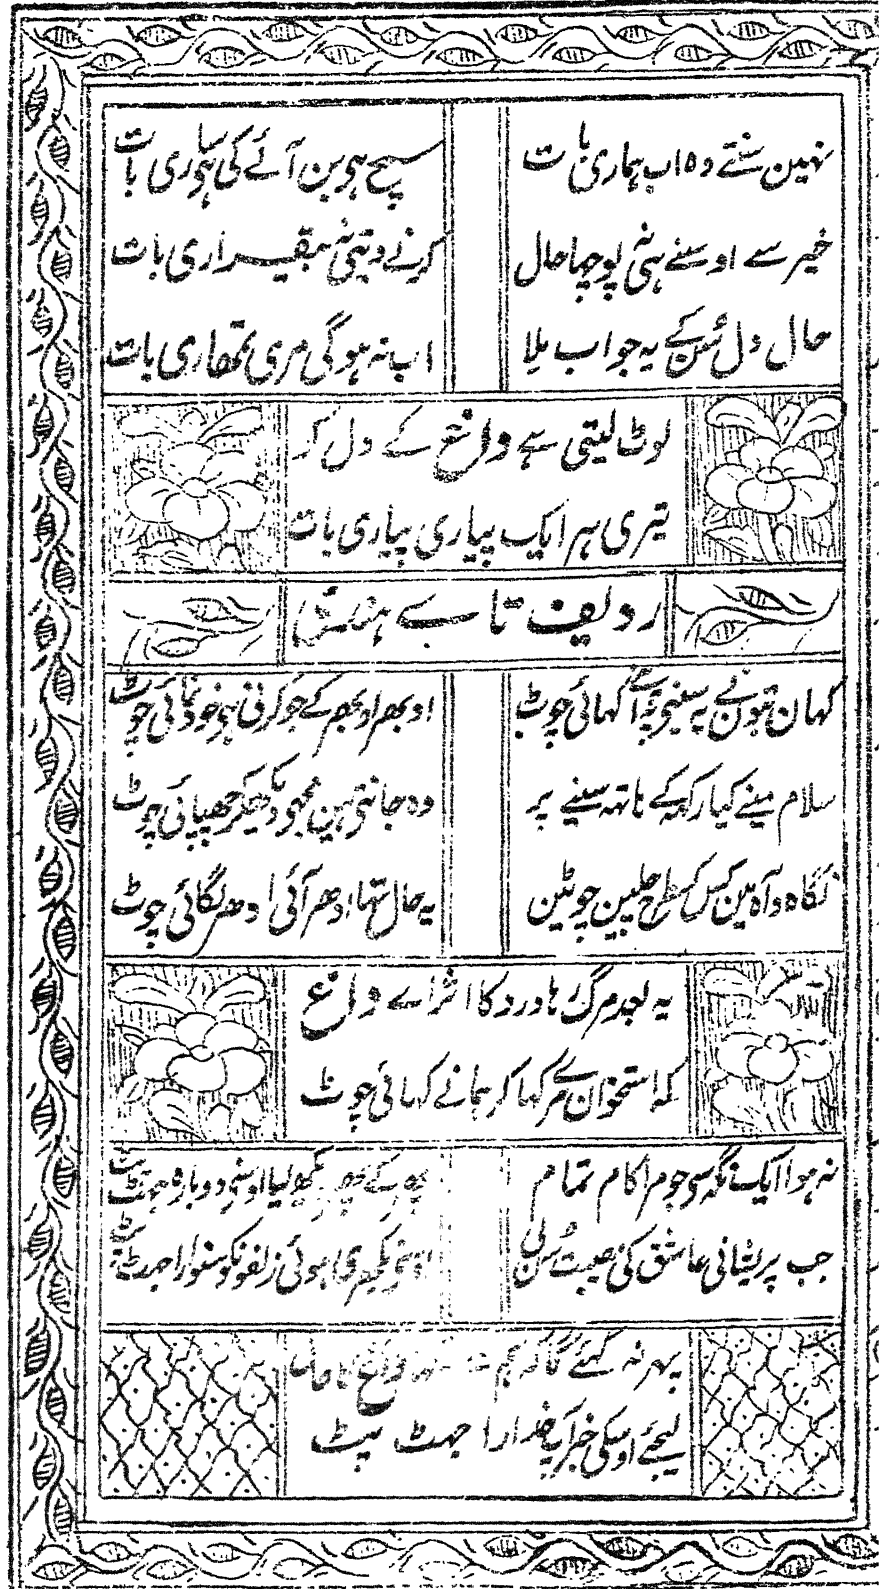 نہین سنتے وہ اب ہماری بات
سچ ہو بن آئے کی ہو ساری بات
خیر سے اوسنے ہی نہ پوچہا حال
کرنے دیتی نہ بیقراری بات
حال دل سُن کے یہ جواب ملا
اب نہ ہوگی مری تمھاری بات
لوٹ لیتی ہے داغ کے دل کو
تیری ہر ایک پیاری پیاری بات
ردیف تاے ہندی
کہان پہ سینے پہ کہائی چوٹ
اوبھر اوبھر کے جو کرتی ہی خود نمائی چوٹ
سلام مینے کیا رکہکے ہاتہ سینے پر
وہ جانتی ہین مجہو دیکھکر چھپائی چوٹ
نگاہ و آہ مین کس کسطرح چلین چوٹین
یہ حال تہا ادھر آئی ادھر لگائی چوٹ
یہ بعد مرگ رہا درد کا اثر اے داغ
کہ استخوان مرے کہا کر ہما نے کہائی چوٹ
نہ ہوا ایک نگہ سی جو مرا کام تمام
پھر کے پھر دیکھ لیا اوسنی دوبارہ جھٹ پٹ
جب پریشانی عاشق کی مصیبت سُن لی
اوسنی بکھری ہوئی زلفونکو سنوارا جھٹ پٹ
پہر نہ کہئے گا کہ ہم داغ کا حال
لیجئے اوسکی خبر آپ خدارا جہٹ پٹ